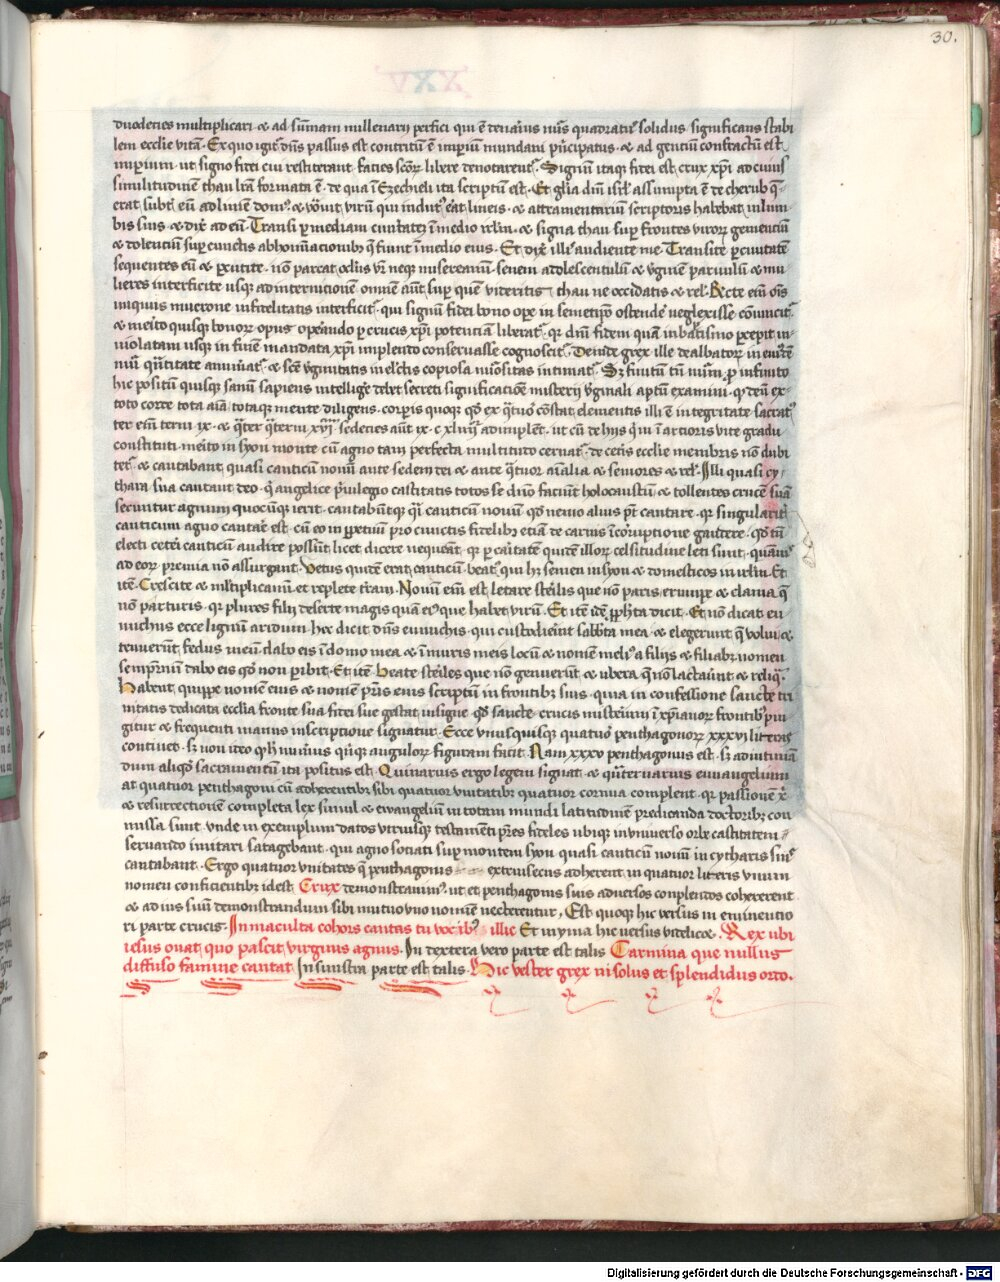 30.
duodecies multiplicari & ad sum̄am millenarij perfici qui ē denarius nūs quadratus solidus significans stabi
lem ecclie vitā. Ex quo igit̄ dn̄s passus est contritū ē imperiū mundani prīcipatus & ad gentiū confractū est
imperium ut signo fidei cui restiterant facies sc̄or libere denotarent. Signū itaq fidei est crux xp̄i ad cuius
similitudinē thau lr̄a formata ē de qua ī Ezechieli ita scriptū est. Et glīa dn̄i isrl assumpta ē de cherub q̄
erat subt eū ad limē dom & vocavit virū qui indut erat lineis & attramentariū scriptoris habebat in lum
bis suis & dix ad eū. Transi p mediam ciuitatē ī medio irlm & signa thau sup frontes viror gementiū
& dolentiū sup cunctis abhominacionib q̄ fiunt ī medio eius. Et dix illis audiente me Transite p ciuitatē
sequentes eū & pcutite nō parcat oclus vr̄ neq misereamī senem adolescentulū & vginē paruulū & mu
lieres interficite usq ad internicionē omnē aūt sup quē videritis thau ne occidatis & rel. Recte eī oīs
iniquus mucrone infidelitatis interficit qui signū fidei bono ope in semetipo ostendē neglexisse cōuincit
& merito quisq bonor opus operando p crucis xp̄i potenciā liberat qr dn̄i fidem quā in batismo pcepit in
uiolatam usq in finē mandata xp̄i implendo conseruasse cognoscit. Deinde grex ille dealbator in eiusdē
nūi quātitate annūiat & scē vginitatis in electis copiosa nūositas intimat. Sz finitū tn̄ nūm p infinito
hic positū quisq sanū sapiens intellige debt secreti significacōne misterij vginali aptū examini. q deū ex
toto corde tota aīa totaq mente diligens corpis quoq qd ex qtuor cōstat elementis illi ē integritate sacrat
ter eī terni ix & qter qterni xvi sedecies aūt ix cxliiij adimplent ut cū de hijs q in artioris vite gradu
constituti merito in syon monte cū agno tam perfecta multitudo cernat de ceteris ecclie membris nō dubi
tet & cantabant quasi canticū nouū ante sedem dei & ante qtuor aīalia & seniores & rel. Illi quasi cy-
thara sua cantant deo q angelice priuilegio castitatis totos se dn̄o faciunt holocaustū & tollentes crucē suā
secuntur agnum quocūq ierit cantabūtq qi canticū nouū qd nemo alius pt cantare qr singularit
canticum agno cantare est cū eo in ppetuū pro cunctis fidelib etiā de carnis īcorruptione gaudere qd tn̄
electi ceteri canticū audire possūt licet dicere nequeāt qr p caritatē quidē illor celsitudine leti sunt quāuis
ad eor premia nō assurgant. Vetus quidē erat canticū beatus qui hz semen in syon & domesticos in irlm. Et
itē Crescite & mltiplicamī et replete terrā. Nouū eī est letare sterilis que nō paris erumpe & clama q̄
nō parturis qr plures filij deserte magis quā ei que habet virū. Et itē idē ppheta dicit. Et nō dicat eu
nuchus ecce lignū aridum hec dicit dn̄s eunuchis qui custodierint sabbta mea & elegerint q volui &
tenuerīt fedus meū dabo eis ī domo mea & ī muris meis locū & nomē meli a filijs & filiabz nomen
sempiternū dabo eis qd non pibit. Et itē Beate steriles que nō genuerūt & ubera q nō lactauīt & reliq.
Habent quippe nomē eius & nomē pr̄is eius scriptū in frontibz suis quia in confessione sancte tri
nitatis dedicata ecclia fronte sua fidei sue gestat insigne qd sancte crucis misteriū ī xp̄ianor frontibz pin
gitur & frequenti manus inscriptione signatur. Ecce vnusquisq quatuor penthagonor xxxvi literas
continet sz non ideo qd hic numerus quīq angulor figuram facit. Nam xxxv penthagonus est sz ad intimā
dum aliqd sacramentū ita positus est. Quinarius ergo legem signat & quaternarius euuangelium
at quatuor penthagoni cū adherentibz sibi quatuor vnitatibz quatuor cornua complent qr passione x̄
& resurrectionē completa lex simul & ewangeliū in totam mundi latitudinē predicanda doctoribz con
missa sunt vnde in exemplum datos vtriusq testamēti pr̄es fideles ubiqz in vniuerso orbe castitatem
seruando imitari satagebant qui agno sociati sup montem syon quasi canticū nouū in cytharis suis
cantabant. Ergo quatuor vnitates q̄ penthagonis extrinsecus adherent in quatuor literis vnum
nomen conficientibz idest Crux demonstrauim ut et penthagonis suis aduersos conplendos cohererent
& ad ius suū demonstrandum sibi mutuo vno nomīe necterentur. Est quoq hic versus in eminentio
ri parte crucis. Inmaculta cohors cantas tu vocibz illic Et in yma hic versus videlicz. Rex ubi
iesus ouat quo pascit virginis agnus. In dextera vero parte est talis Carmina que nullus
diffuso famine cantat. In sinistra parte est talis. Hic vester grex ni solus et splendidus ordo.
Digitalisierung gefördert durch die Deutsche Forschungsgemeinschaft - DFG